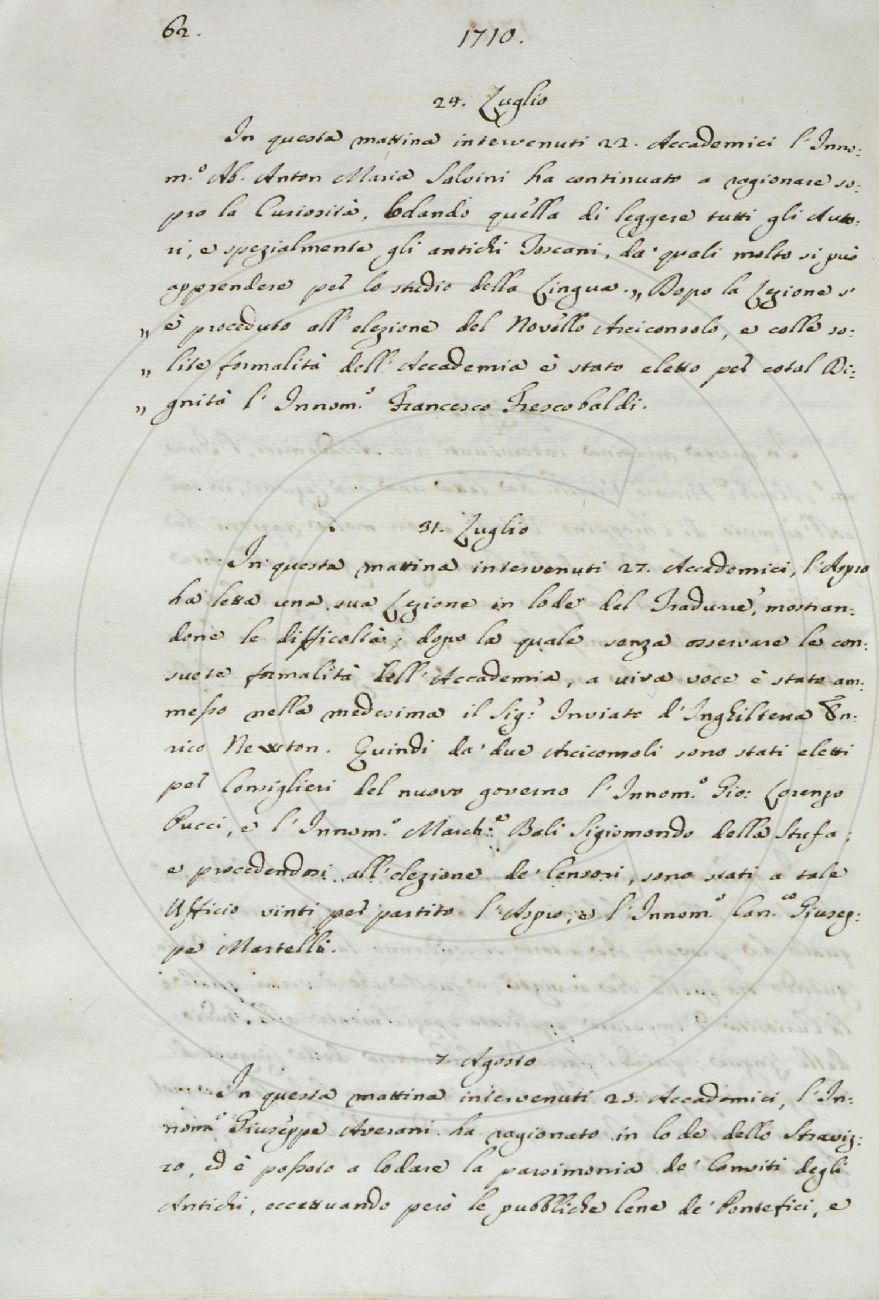 62.
1710.
24. Luglio
In questa mattina intervenuti 22. Accademici l'Inno:
m.º Ab. Anton Maria Salvini ha continuato a ragionare so:
pra la Curiosità, lodando quella di leggere tutti gli Auto:
ri, e spezialmente gli antichi Toscani, da' quali molto si può
apprendere per lo studio della Lingua. „ Dopo la Lezione s'
„ è proceduto all'elezione del Novello Arciconsolo, e colle so:
„ lite formalità dell'Accademia è stato eletto per cotal Di:
„ gnità l'Innom.º Francesco Frescobaldi.
31. Luglio
In questa mattina intervenuti 27. Accademici, l'Aspro
ha letta una sua Lezione in lode del Tradurre, mostran:
done le difficoltà; dopo la quale senza osservare le con:
suete formalità dell'Accademia, a viva voce è stato am:
messo nella medesima il Sig.r Inviato d'Inghilterra En:
rico Newton. Quindi da' due Arciconsoli sono stati eletti
per Consiglieri del nuovo governo l'Innom.º Gio: Lorenzo
Pucci, e l'Innom.º March.e Balì Sigismondo della Stufa;
e procedendosi all'elezione de' Censori, sono stati a tale
Ufficio vinti per partito l'Aspro, e l'Innom.º Can.co Giusep:
pe Martelli.
7. Agosto
In questa mattina intervenuti Accademici, l'In:
nom.º Giuseppe Averani ha ragionato in lode dello Straviz:
zo, ed è passato a lodare la parsimonia de' Conviti degli
Antichi, eccettuando però le pubbliche Cene de' Pontefici, e